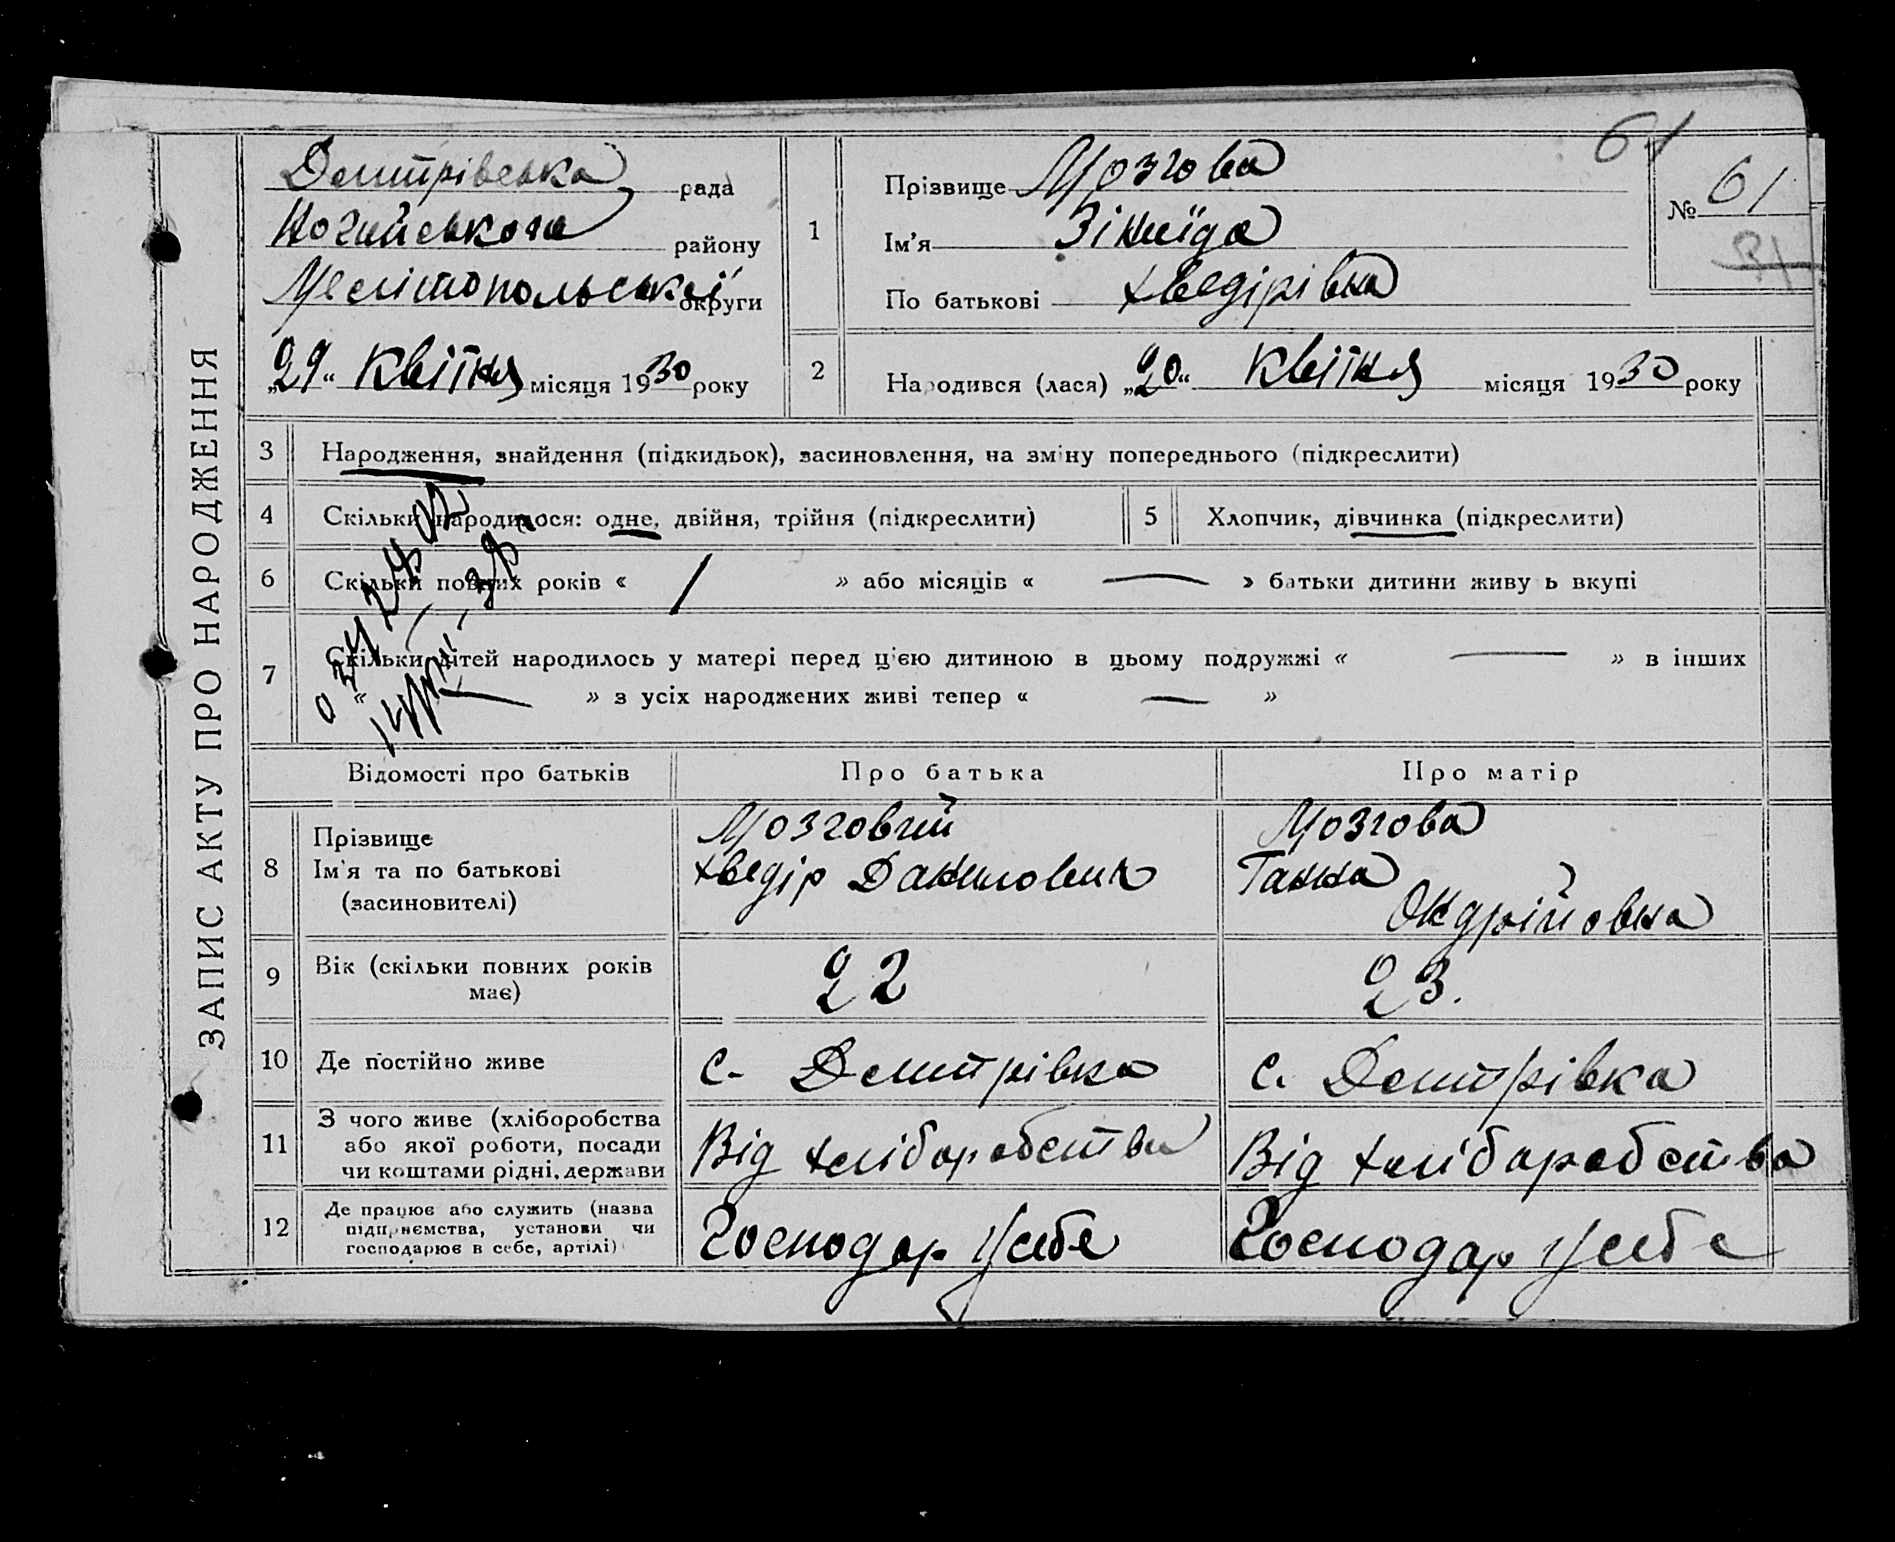 ЗАПИС АКТУ ПРО НАРОДЖЕННЯ
Дмитрівська рада
Ногайського району
Мелітопольської округи
„29“ квітня місяця 1930 року
61
№ 61
31
1
Прізвище Мозгова
Ім'я Зінаїда
По батькові Хведірівна
2
Народився (лася) „20“ квітня місяця 1930 року
3 Народження, знайдення (підкидьок), засиновлення, на зміну попереднього (підкреслити)
4 Скільки народилося: одне, двійня, трійня (підкреслити) 5 Хлопчик, дівчинка (підкреслити)
6 Скільки повних років « / » або місяців « — » батьки дитини живуть вкупі
7 Скільки дітей народилось у матері перед цією дитиною в цьому подружжі « — » в інших
« — » з усіх народжених живі тепер « — »
Відомості про батьків Про батька Про матір
8 Прізвище
Ім'я та по батькові
(засиновителі)
Мозговий
Хведір Данилович
Мозгова
Ганна
Ондрійовна
9 Вік (скільки повних років
має)
22
23.
10 Де постійно живе
с. Дмитрівка
с. Дмитрівка
11 З чого живе (хліборобства
або якої роботи, посади
чи коштами рідні, держави
Від хліборобства
Від хліборобства
12 Де працює або служить (назва
підприємства, установи чи
господарює в себе, артілі)
Господар у себе
Господар у себе